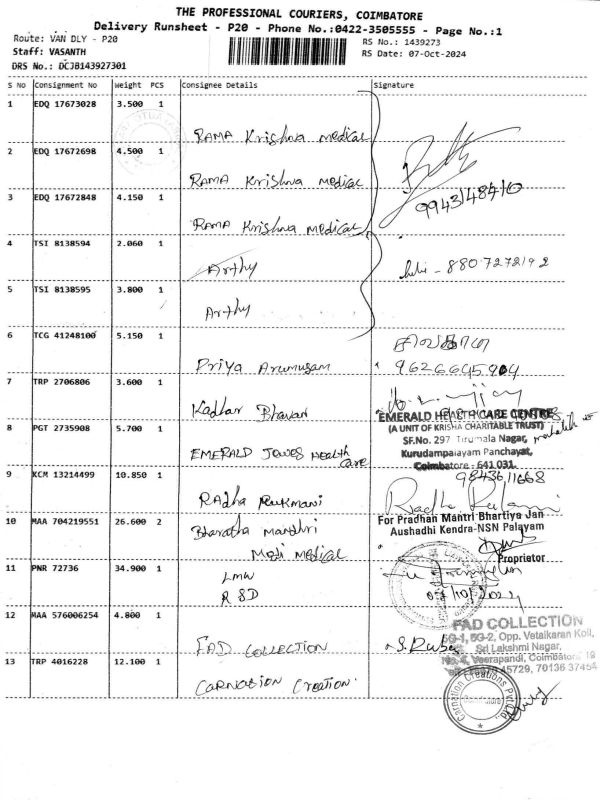 THE PROFESSIONAL COURIERS, COIMBATORE
Delivery Runsheet - P20 - Phone No.:0422-3505555 - Page No.:1
Route: VAN DLY - P20
RS No.: 1439273
Staff: VASANTH
RS Date: 07-Oct-2024
DRS No.: DCJB143927301
S No Consignment No Weight PCS Consignee Details Signature
1 EDQ 17673028 3.500 1
RAMA Krishna medical
2 EDQ 17672698 4.500 1
RAMA Krishna medical
3 EDQ 17672848 4.150 1
9943148410
RAMA Krishna medical
4 TSI 8138594 2.060 1
Arthy
8807272192
5 TSI 8138595 3.800 1
Arthy
6 TCG 41248100 5.150 1
Priya Arumugam
9626645904
7 TRP 2706806 3.600 1
Kadhar Bhavan
EMERALD HEALTH CARE CENTRE
(A UNIT OF KRISHA CHARITABLE TRUST)
8 PGT 2735908 5.700 1
SF.No. 297 Tirumala Nagar,
Kurudampalayam Panchayat,
EMERALD Jewes Health care
Coimbatore - 641 031.
9 KCM 13214499 10.850 1
9843611668
Radha Rukmani
For Pradhan Mantri Bhartiya Jan
10 MAA 704219551 26.600 2
Aushadhi Kendra-NSN Palayam
Bharatha manthri
Modi medical
Proprietor
11 PNR 72736 34.900 1
LMW
RSD
07/10/2024
12 MAA 576006254 4.800 1
FAD COLLECTION
5G-1, 5G-2, Opp. Vetaikaran Koil,
FAD COLLECTION
Sri Lakshmi Nagar,
13 TRP 4016228 12.100 1
Veerapandi, Coimbatore 19
45729, 70136 37454
CARNATION CREATION
Carnation Creations Pvt. Ltd.